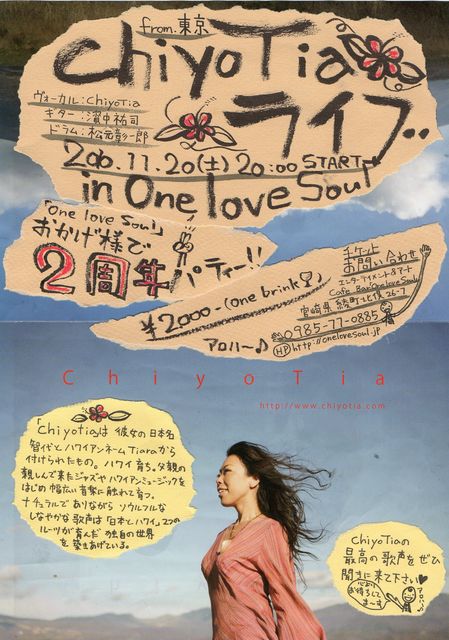 from.東京
ChiyoTia
ライブ..
ヴォーカル:ChiyoTia
ギター:濱中祐司
ドラム:松元彰一郎
2010.11.20(土) 20:00 START
in One love Soul
「One love Soul」
おかげ様で
2周年パーティー!!
¥2000-(one Drink)
アロハ〜♪
チケット
お問い合わせ
エンターテイメント&アート
Cafe Bar One love Soul
宮崎県綾町北俣26-7
0985-77-0885
HP http://onelovesoul.jp
ChiyoTia
http://www.chiyotia.com
「Chiyotia」は彼女の日本名
智代とハワイアンネームTiaraから
付けられたもの。ハワイ育ち。父親の
親しんで来たジャズやハワイアンミュージックを
はじめ幅広い音楽に触れて育つ。
ナチュラルでありながらソウルフルな
しなやかな歌声は「日本とハワイ」2つの
ルーツが育んだ独自の世界
を築きあげている。
ChiyoTiaの
最高の歌声をぜひ
聞きに来て下さい♥
心より
お待ちして
ま〜す
アロハ〜♪